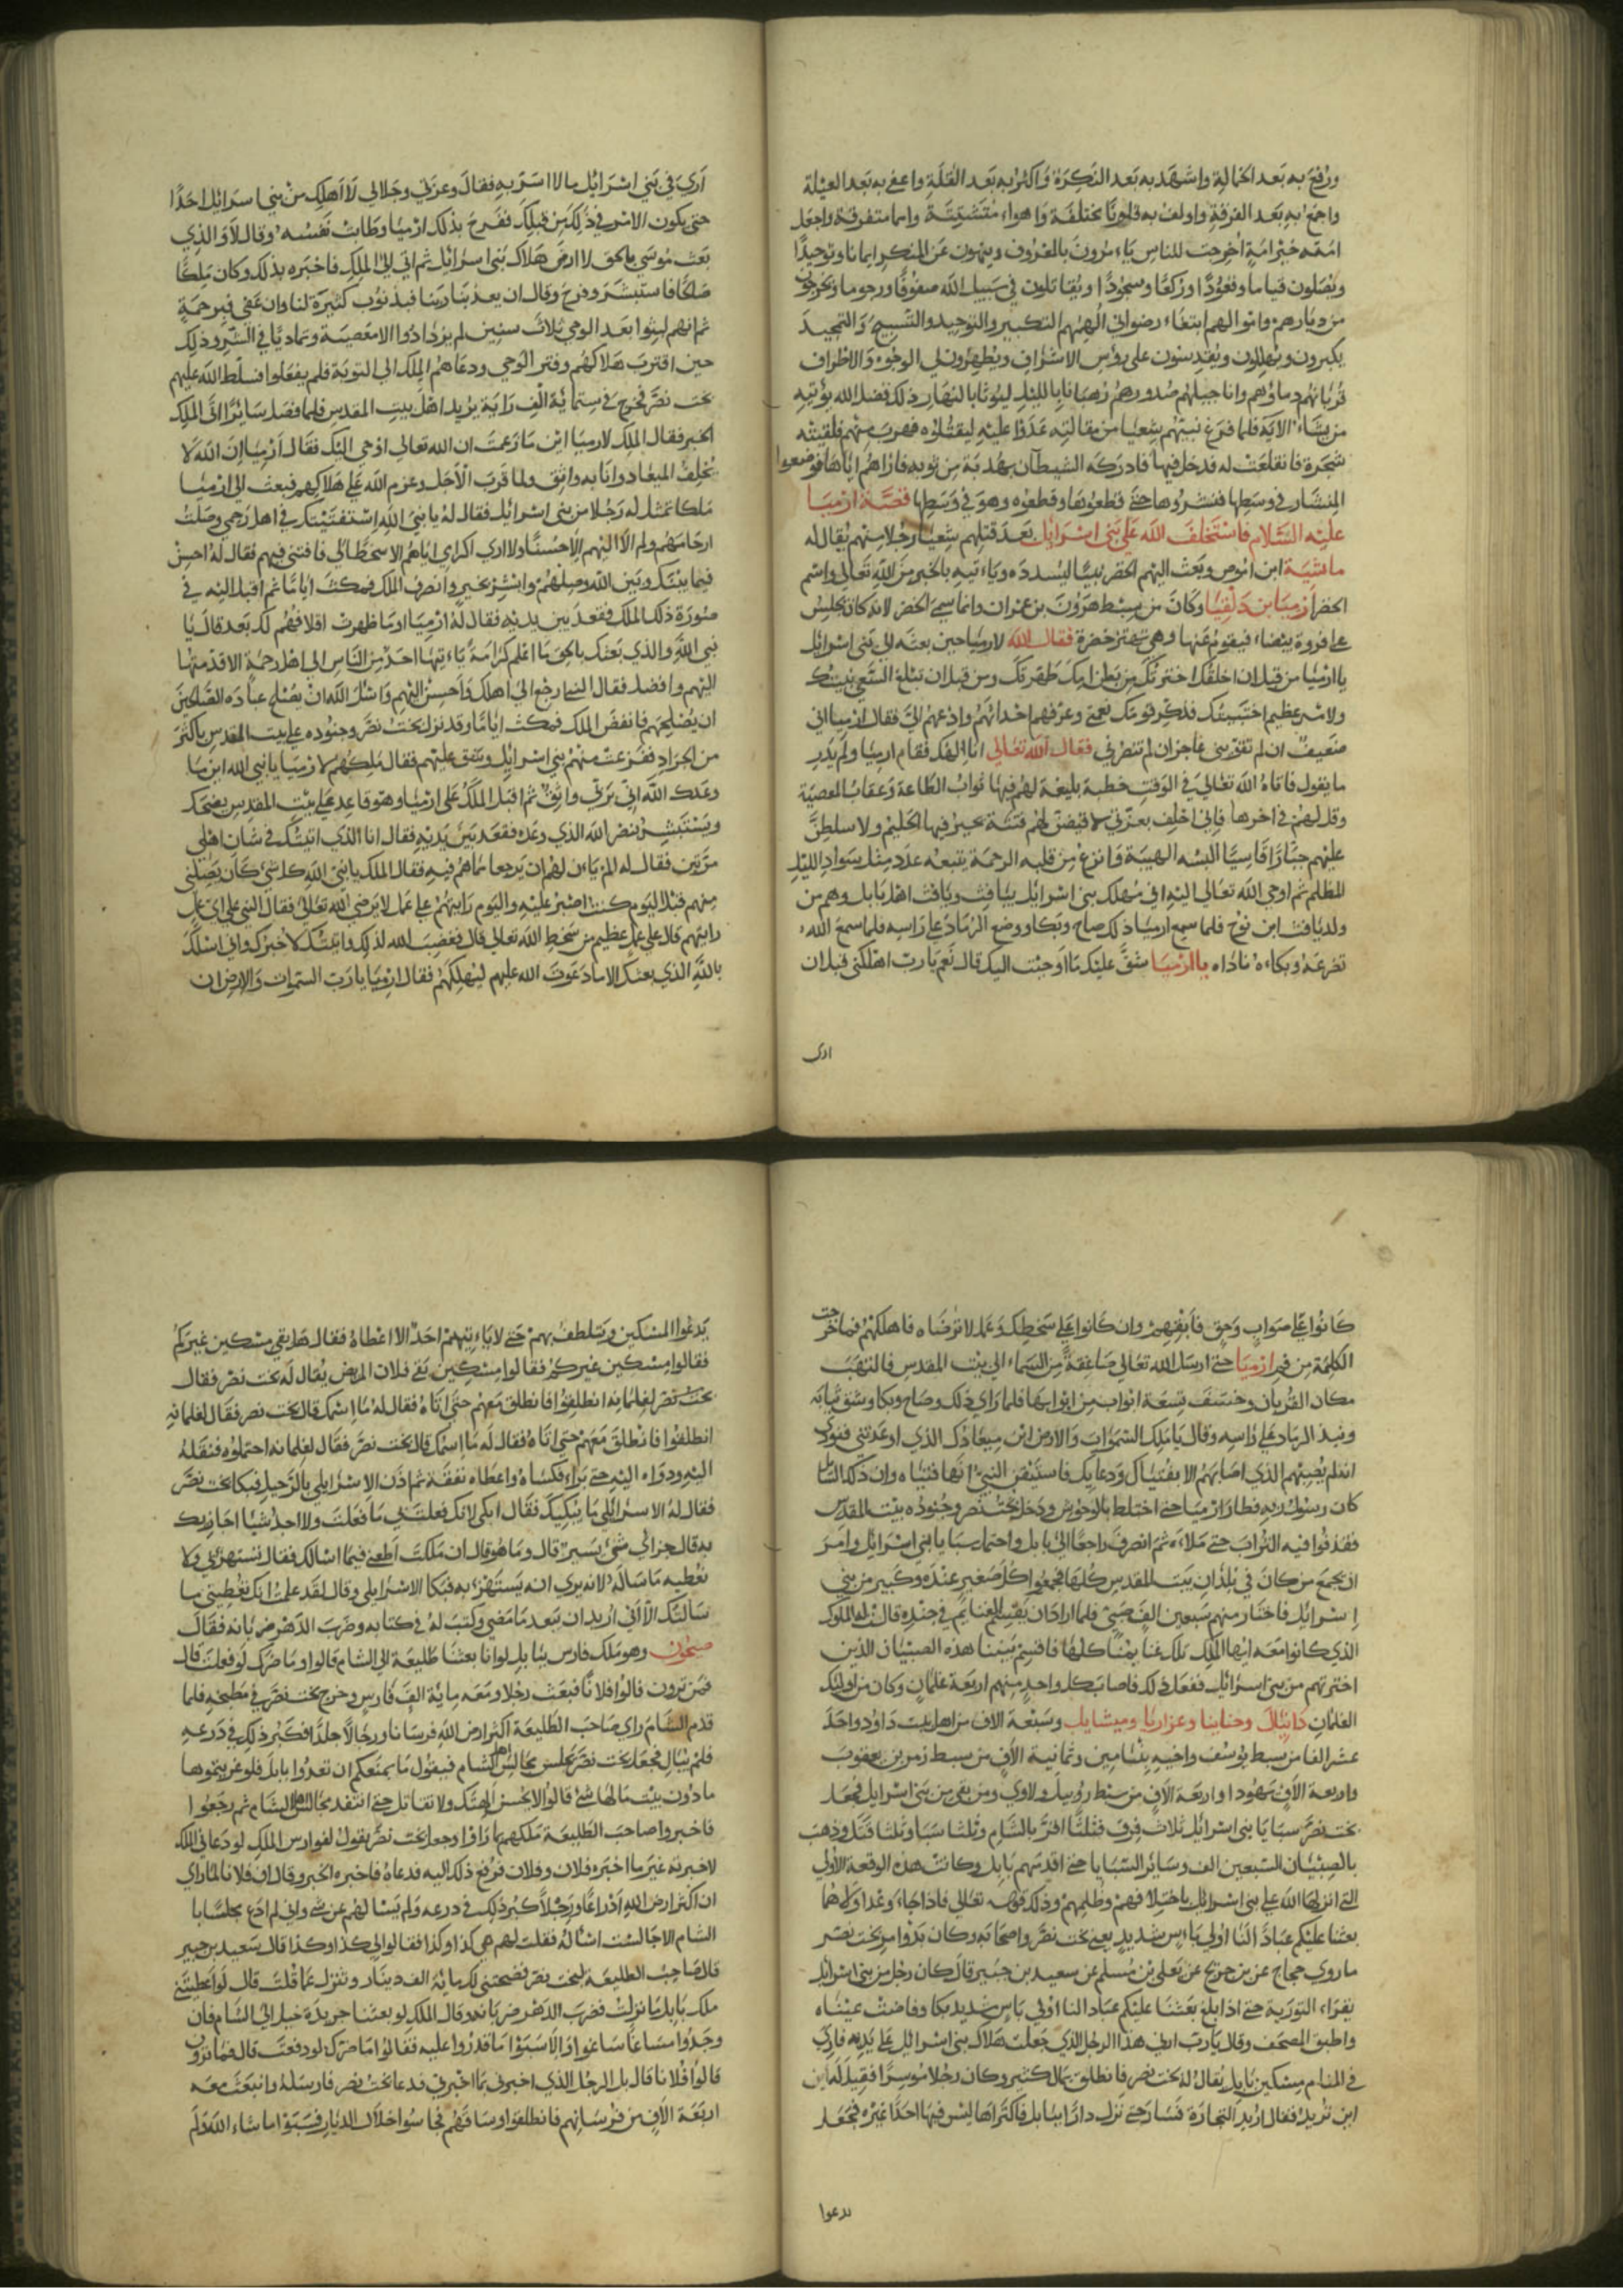 ورفع به بعد الخمالة واشهد به بعد النكرة واكثر به بعد القلة واغني به بعد العيلة
واجمع به بعد الفرقة واولف به قلوبا مختلفة واهواء متشتتة واسما متفرقة واجعل
امته خير امة اخرجت للناس ياءمرون بالمعروف وينهون عن المنكر ايمانا وتوحيدا
ويصلون قياما وقعودا وركعا وسجودا ويقاتلون في سبيل الله صفوفا ورجوما ويخرجون
من ديارهم واموالهم ابتغاء رضواني الهمهم التكبير والتوحيد والتسبيح والتمجيد
يكبرون ويهللون ويقدسون على رؤس الاشراف ويطهرون لي الوجوه والاطراف
قربانهم دماؤهم واناجيلهم صدورهم رهبانا بالليل ليوثا بالنهار ذلك فضل الله يؤتيه
من يشاء الاية فلما فرغ نبيهم شعيا من مقالته عدوا عليه ليقتلوه فهرب منهم فلقيته
شجرة فانفلقت له فدخل فيها فادركه الشيطان بهدبة من ثوبه فاراهم اياها فوضعوا
المنشار في وسطها فنشروها حتى قطعوها وقطعوه وهو في وسطها قصة ارميا
عليه السلام فاستخلف الله على بني اسرائيل بعد قتلهم شعيا رجلا منهم يقال له
ماشية ابن اموص وبعث اليهم الخضر نبيا ليسدده وياءتيه بالخبر من الله تعالى واسم
الخضر ارميا بن دلقيا وكان من سبط هرون بن عمران وانما سمى الخضر لانه كان يجلس
على فروة بيضاء فيقوم عنها وهي تهتز خضرة فقال الله لارميا حين بعثه الى بني اسرائيل
يا ارميا من قبل ان اخلقك اخترتك من بطن امك طهرتك ومن قبل ان تبلغ السعي نبيتك
ولامر عظيم اختبيتك فذكر قومك نعمي وعرفهم احداثهم وادعهم الي فقال ارميا اني
ضعيف ان لم تقوني عاجز ان لم تنصرني فقال الله تعالى انا الهمك فقام ارميا ولم يدر
ما يقول فاتاه الله تعالى في الوقت خطبة بليغة لهم فيها ثواب الطاعة وعقاب المعصية
وقل لهم في اخرها فاني احلف بعزتي لاقيضن لهم فتنة يحير فيها الحليم ولاسلطن
عليهم جبارا قاسيا البسه الهيبة وانزع من قلبه الرحمة يتبعه عدد مثل سواد الليل
المظلم ثم اوحى الله تعالى اليه اني مهلك بني اسرائيل بيافث ويافث اهل بابل وهم من
ولد يافث ابن نوح فلما سمع ارميا ذلك صاح وبكا ووضع الرماد على راسه فلما سمع الله
تضرعه وبكاءه ناداه يا ارميا شق عليك ما اوحيت اليك قال نعم يا رب اهلكني قبل ان
ارى
ارى في بني اسرائيل ما لا اسر به فقال وعزتي وجلالي لا اهلك من بني اسرائيل احدا
حتى يكون الامر في ذلك من قبلك ففرح بذلك ارميا وطابت نفسه وقال لا والذي
بعث موسى بالحق لا ارضى هلاك بني اسرائيل ثم اتى الى الملك فاخبره بذلك وكان ملكا
صالحا فاستبشر وفرح وقال ان يعذبنا ربنا فبذنوب كثيرة لنا وان عفى فبرحمة
ثم انهم لبثوا بعد الوحي ثلاث سنين لم يزدادوا الا معصية وتماديا في الشر وذلك
حين اقترب هلاكهم وفتر الوحي ودعاهم الملك الى التوبة فلم يفعلوا فسلط الله عليهم
بخت نصر فخرج في ستمائة الف راية يريد اهل بيت المقدس فلما فصل سائرا اتى الملك
الخبر فقال الملك لارميا اين ما زعمت ان الله تعالى اوحى اليك فقال ارميا ان الله لا
يخلف الميعاد وانا به واثق ولما قرب الاجل وعزم الله على هلاكهم فبعث الى ارميا
ملكا تمثل له رجلا من بني اسرائيل فقال له يا نبي الله استفتيتك في اهل رحمي وصلت
ارحامهم ولم ال اليهم الا حسنا ولا ارى اكرامي اياهم الا سخطا لي فافتني فيهم فقال له احسن
فيما بينك وبين الله وصلهم وابشر بخير وانصرف الملك فمكث اياما ثم اقبل اليه في
صورة ذلك الملك فقعد بين يديه فقال له ارميا اوما ظهرت اخلاقهم لك بعد قال يا
نبي الله والذي بعثك بالحق ما اعلم كرامة ياءتيها احد من الناس الى اهل رحمه الا قدمتها
اليهم وافضل فقال النبي ارجع الى اهلك واحسن اليهم واسئل الله ان يصلح عباده الصالحين
ان يصلحهم فانفض الملك فمكث اياما وقد نزل بخت نصر وجنوده على بيت المقدس باكثر
من الجراد ففزعت منهم بني اسرائيل وشق عليهم فقال ملكهم لارميا يا نبي الله اين ما
وعدك الله اني بربي واثق ثم اقبل الملك على ارميا وهو قاعد على بيت المقدس يضحك
ويستبشر بنصر الله الذي وعده فقعد بين يديه فقال انا الذي اتيتك في شان اهلي
مرتين فقال له الم ياءن لهم ان يرجعوا عما هم فيه فقال الملك يا نبي الله كل شئ كان يصلني
منهم قبل اليوم كنت اصبر عليه واليوم رايتهم على عمل لا يرضى الله تعالى فقال النبي على اى عمل
رايتهم قال على عمل عظيم من سخط الله تعالى قال فغضب الله لذلك واتيتك لاخبرك واني اسئلك
بالله الذي بعثك الا ما دعوت الله عليهم ليهلكهم فقال ارميا يا رب السموات والارض ان
كانوا على صواب وحق فابقهم وان كانوا على سخطك وعمل لا ترضاه فاهلكهم فما خرجت
الكلمة من فم ارميا حتى ارسل الله تعالى صاعقة من السماء الى بيت المقدس فالتهب
مكان القربان وخسف تسعة ابواب من ابوابها فلما راى ذلك وصاح وبكا وشق ثيابه
ونبذ الرماد على راسه وقال يا ملك السموات والارض اين ميعادك الذي اوعدتني فنودي
انه لم يصبهم الذي اصابهم الا بفتياك ودعايك فاستيقن النبي انها فتياه وان ذلك السائل
كان رسول ربه فطار ارميا حتى اختلط بالوحوش ودخل بخت نصر وجنوده بيت المقدس
فقذفوا فيه التراب حتى ملاءه ثم انصرف راجعا الى بابل واحتمل سبايا بني اسرائيل وامر
ان يجمع من كان في بلدان بيت المقدس كلها فجمعوا كل صغير عنده وكبير من بني
اسرائيل فاختار منهم سبعين الف صبي فلما اراد ان يقسم الغنائم في جنده قالت له الملوك
الذي كانوا معه ايها الملك لك غنائمنا كلها فاقسم بيننا هذه الصبيان الذين
اخترتهم من بني اسرائيل ففعل ذلك فاصاب كل واحد منهم اربعة غلمان وكان من اولئك
الغلمان دانيال وحنانيا وعزاريا وميشايل وسبعة الاف من اهل بيت داود واحد
عشر الفا من سبط يوسف واخيه بنيامين وثمانية الاف من سبط زمر بن يعقوب
واربعة الاف يهودا واربعة الاف من سبط روبيل ولاوي ومن بقى من بني اسرائيل فجعل
بخت نصر سبايا بني اسرائيل ثلاث فرق فثلثا اقر بالشام وثلثا سبا وثلثا قتل وذهب
بالصبيان السبعين الف وسائر السبايا حتى اقدمهم بابل وكانت هذه الوقعة الاولى
التي انزلها الله على بني اسرائيل باختلافهم وظلمهم وذلك قوله تعالى فاذا جاء وعد اولاهما
بعثنا عليكم عبادا لنا اولي باءس شديد يعني بخت نصر واصحابه وكان بدو امر بخت نصر
ما روى حجاج عن بن جريج عن يعلى بن مسلم عن سعيد بن جبير قال كان رجل من بني اسرائيل
يقراء التورية حتى اذا بلغ بعثنا عليكم عبادا لنا اولي باس شديد بكا وفاضت عيناه
واطبق المصحف وقال يا رب ارني هذا الرجل الذي جعلت هلاك بني اسرائيل على يديه فاري
في المنام مسكين ببابل يقال له بخت نصر فانطلق بمال كثير وكان رجلا موسرا فقيل له اين
اين تريد فقال اريد التجارة فسار حتى نزل دارا ببابل فاكتراها ليس فيها احدا غيره فجعل
يدعوا
يدعوا المسكين ويتلطف بهم حتى لا ياءتيهم احد الا اعطاه فقال هل بقي مسكين غيركم
فقالوا مسكين غيركم فقالوا مسكين بقى فلان المريض يقال له بخت نصر فقال
بخت نصر لغلمانه انطلقوا فانطلق معهم حتى اتاه فقال له ما اسمك قال بخت نصر فقال لغلمانه
انطلقوا فانطلق معهم حتى اتاه فقال له ما اسمك قال بخت نصر فقال لغلمانه احتملوه فنقله
اليه ودواه اليه حتى براء فكساه واعطاه نفقة ثم اذن الاسرايلي بالرحيل فبكا بخت نصر
فقال له الاسرائيلي ما يبكيك فقال ابكي لانك فعلت بي ما فعلت ولا اجد شيا اجازيك
به قال جزائي شئ يسير قال وما هو قال ان ملكت اطعني فيما اسالك فقال تستهزئ بي ولا
نعطيه ما ساله لانه يرى انه يستهزء به فبكا الاسرايلي وقال لقد علمت انك تعطيني ما
سالتك الا اني اريد ان بعد ما مضى وكتب له في كتابه وضرب الدهر ضربانه فقال
صيحون وهو ملك فارس ببابل لو انا بعثنا طليعة الى الشام قالوا وما ضرك لو فعلت قال
فمن ترون قالوا فلانا فبعث رجلا ومعه مائة الف فارس وخرج بخت نصر في مطبخه فلما
قدم الشام راى صاحب الطليعة اكثر ارض الله فرسانا ورجالا جلدا فكبر ذلك في درعه
فلم يبال فجعل بخت نصر يجلس مجالس اهل الشام فيقول ما يمنعكم ان تغدوا بابل فلو غزيتموها
ما دون بيت مالها شئ قالوا لا نحسن القتال ولا نقاتل حتى انتفد مجالس اهل الشام ثم رجعوا
فاخبروا صاحب الطليعة ملكهم بما راوا وجعل بخت نصر يقول لفوارس الملك لو دعاني الملك
لاخبرته غير ما اخبره فلان وفلان فرفع ذلك اليه فدعاه فاخبره الخبر وقال ان فلانا لما راى
ان اكثر ارض الله اذراعا ورجلا كبر ذلك في درعه ولم يسالهم عن شئ واني لم ادع مجلسا با
الشام الا جالست اساله فقلت لهم هى كذا وكذا فقالوا لي كذا وكذا قال سعيد بن جبير
قال صاحب الطليعة لبخت نصر فضحتني لك مائة الف دينار وتنزل عما قلت قال لو اعطيتني
ملك بابل ما نزلت فضرب الدهر ضربانه وقال الملك لو بعثنا جريدة خيل الى الشام فان
وجدوا مساغا ساغوا والا سبوا ما قدروا عليه فقالوا ما ضرك لو دفعت قال فمن ترون
قالوا فلانا قال بل الرجل الذي اخبرني بما اخبرني فدعا بخت نصر فارسله وانبعث معه
اربعة الاف من فرسانهم فانطلقوا وساقهم فجاسوا خلال الديار فسبوا ما شاء الله ولم